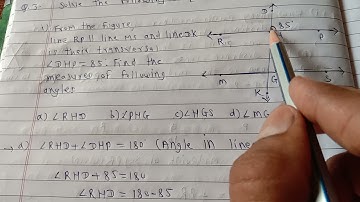 Q.3. Solve the following
1) From the figure
line RP || line MS and line DK
is their transversal
∠DHP = 85. Find the
measures of following
angles
D
85°
H
R
P
M
G
S
K
a) ∠RHD b) ∠PHG c) ∠HGS d) ∠MG
→ a) ∠RHD + ∠DHP = 180 (Angle in line
∠RHD + 85 = 180
∠RHD = 180 - 85